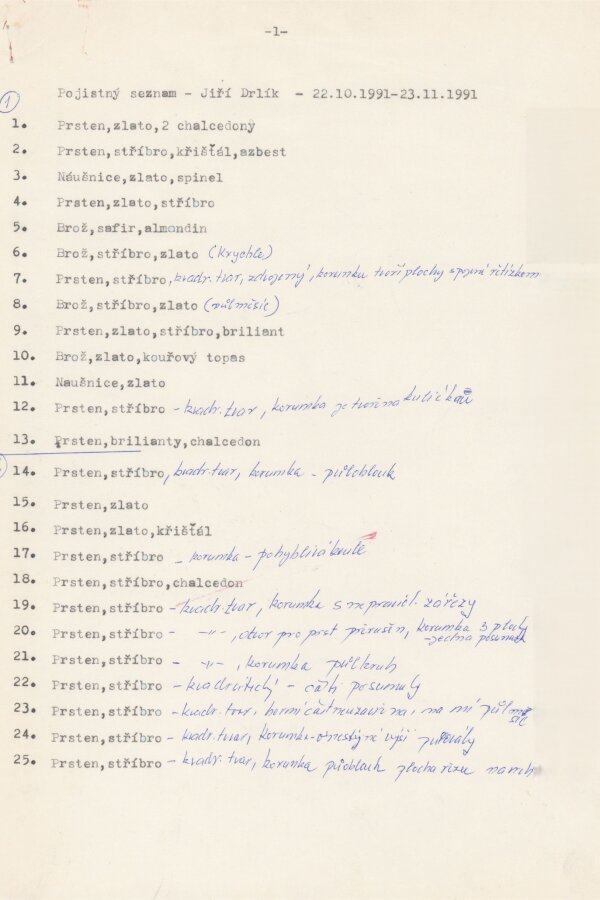 -1-
1
Pojistný seznam - Jiří Drlík - 22.10.1991-23.11.1991
1. Prsten,zlato,2 chalcedony
2. Prsten,stříbro,křišťál,azbest
3. Náušnice,zlato,spinel
4. Prsten,zlato,stříbro
5. Brož,safir,almondin
6. Brož,stříbro,zlato (krychle)
7. Prsten,stříbro,kvadr. tvar, zdvojený, korunku tvoří plochy spojené řetízkem
8. Brož,stříbro,zlato (půlměsíc)
9. Prsten,zlato,stříbro,briliant
10. Brož,zlato,kouřový topas
11. Naušnice,zlato
12. Prsten,stříbro - kvadr. tvar, korunka je tvořena kuličkou
13. Prsten,brilianty,chalcedon
14. Prsten,stříbro, kvadr. tvar, korunka - půloblouk
15. Prsten,zlato
16. Prsten,zlato,křišťál
17. Prsten,stříbro - korunka - pohyblivá koule
18. Prsten,stříbro,chalcedon
19. Prsten,stříbro - kvadr. tvar, korunka s nepravidl. zářezy
20. Prsten,stříbro - -"-, otvor pro prst přerušen, korunka 3 plochy - jedna posunutá
21. Prsten,stříbro - -"-, korunka půlkruh
22. Prsten,stříbro - kvadratický - části posunuty
23. Prsten,stříbro - kvadr. tvar, horní část neuzavřena, na ní půlměsíc
24. Prsten,stříbro - kvadr. tvar, korunka - výši
25. Prsten,stříbro - kvadr. tvar, korunka půloblouk plocha